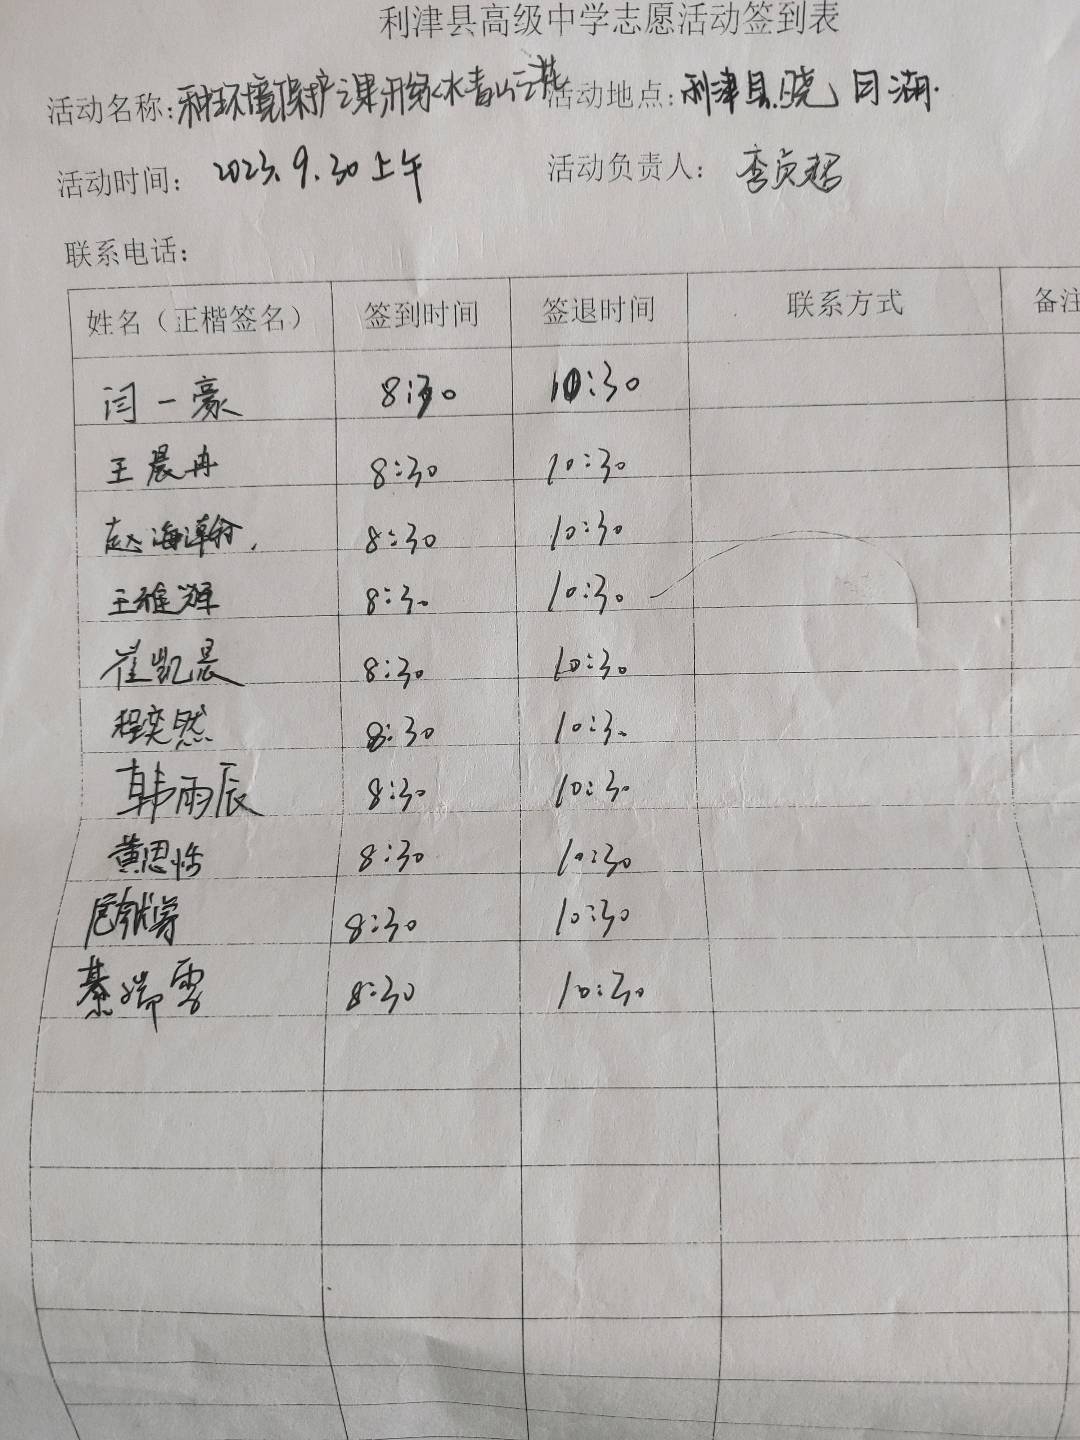 利津县高级中学志愿活动签到表
活动名称: 环境保护 绿水青山 活动地点: 利津县 晓月湖.
活动时间: 2023.9.30上午 活动负责人: 李贞超
联系电话:
姓名（正楷签名） 签到时间 签退时间 联系方式 备注
闫一豪 8:30 10:30
王晨冉 8:30 10:30
赵海瀚. 8:30 10:30
王雅辉 8:30 10:30
崔凯晨 8:30 10:30
程奕然 8:30 10:30
韩雨辰 8:30 10:30
黄思 8:30 10:30
8:30 10:30
綦瑞雪 8:30 10:30